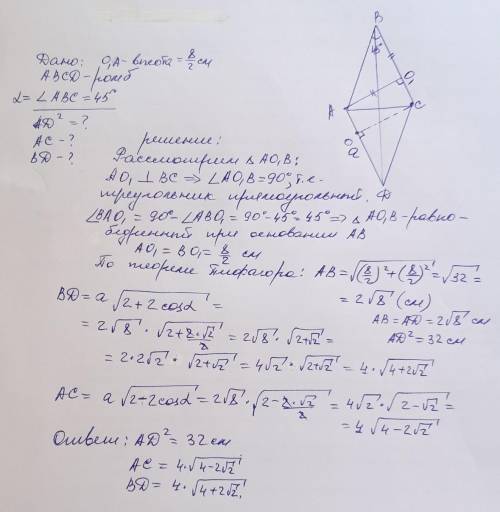 Дано: O₁A - высота = 8/2 см
ABCD - ромб
α = ∠ABC = 45°
AD² = ?
AC - ?
BD - ?
B
45°
O₁
A
C
O
a
D
решение:
Рассмотрим △ AO₁B:
AO₁ ⊥ BC ⇒ ∠AO₁B = 90°, т.е.
треугольник прямоугольный.
∠BAO₁ = 90° - ∠ABO₁ = 90° - 45° = 45° ⇒ △ AO₁B - равно-
бедренный при основании AB
AO₁ = BO₁ = 8/2 см
По теореме Пифагора: AB = √((8/2)² + (8/2)²) = √32 =
= 2√8 (см)
AB = AD = 2√8 см
AD² = 32 см
BD = a √(2 + 2cosα) =
= 2√8 · √(2 + 2·√2/2) = 2√8 · √(2+√2) =
= 2·2√2 · √(2+√2) = 4√2 · √(2+√2) = 4 · √(4+2√2)
AC = a √(2+2cosα) = 2√8 · √(2 - 2·√2/2) = 4√2 · √(2-√2) =
= 4 √(4-2√2)
Ответ: AD² = 32 см
AC = 4·√(4-2√2)
BD = 4·√(4+2√2).